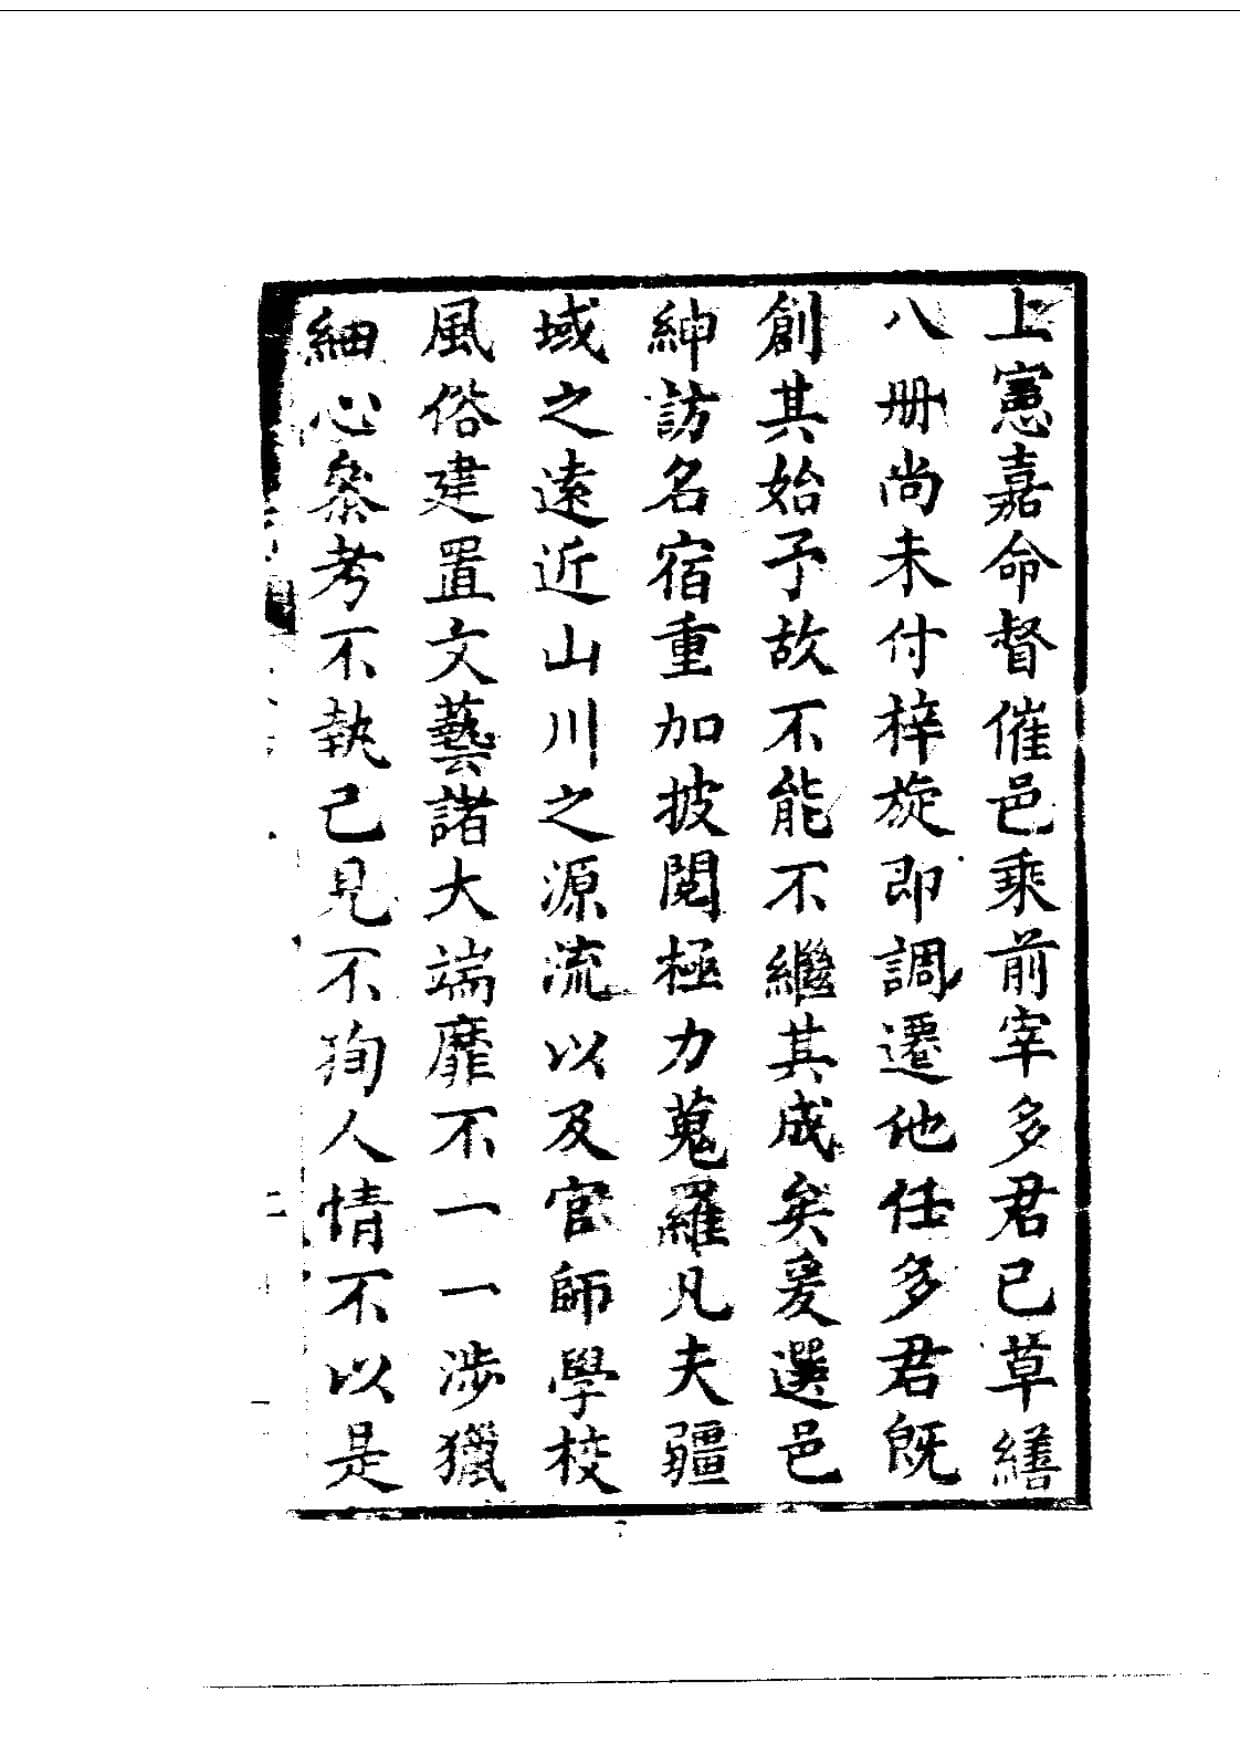 上憲嘉命督催邑乘前宰多君已草繕
八册尚未付梓旋即調遷他任多君既
創其始予故不能不繼其成矣爰選邑
紳訪名宿重加披閱極力蒐羅凡夫疆
域之遠近山川之源流以及官師學校
風俗建置文藝諸大端靡不一一涉獵
細心叅考不執己見不狥人情不以是